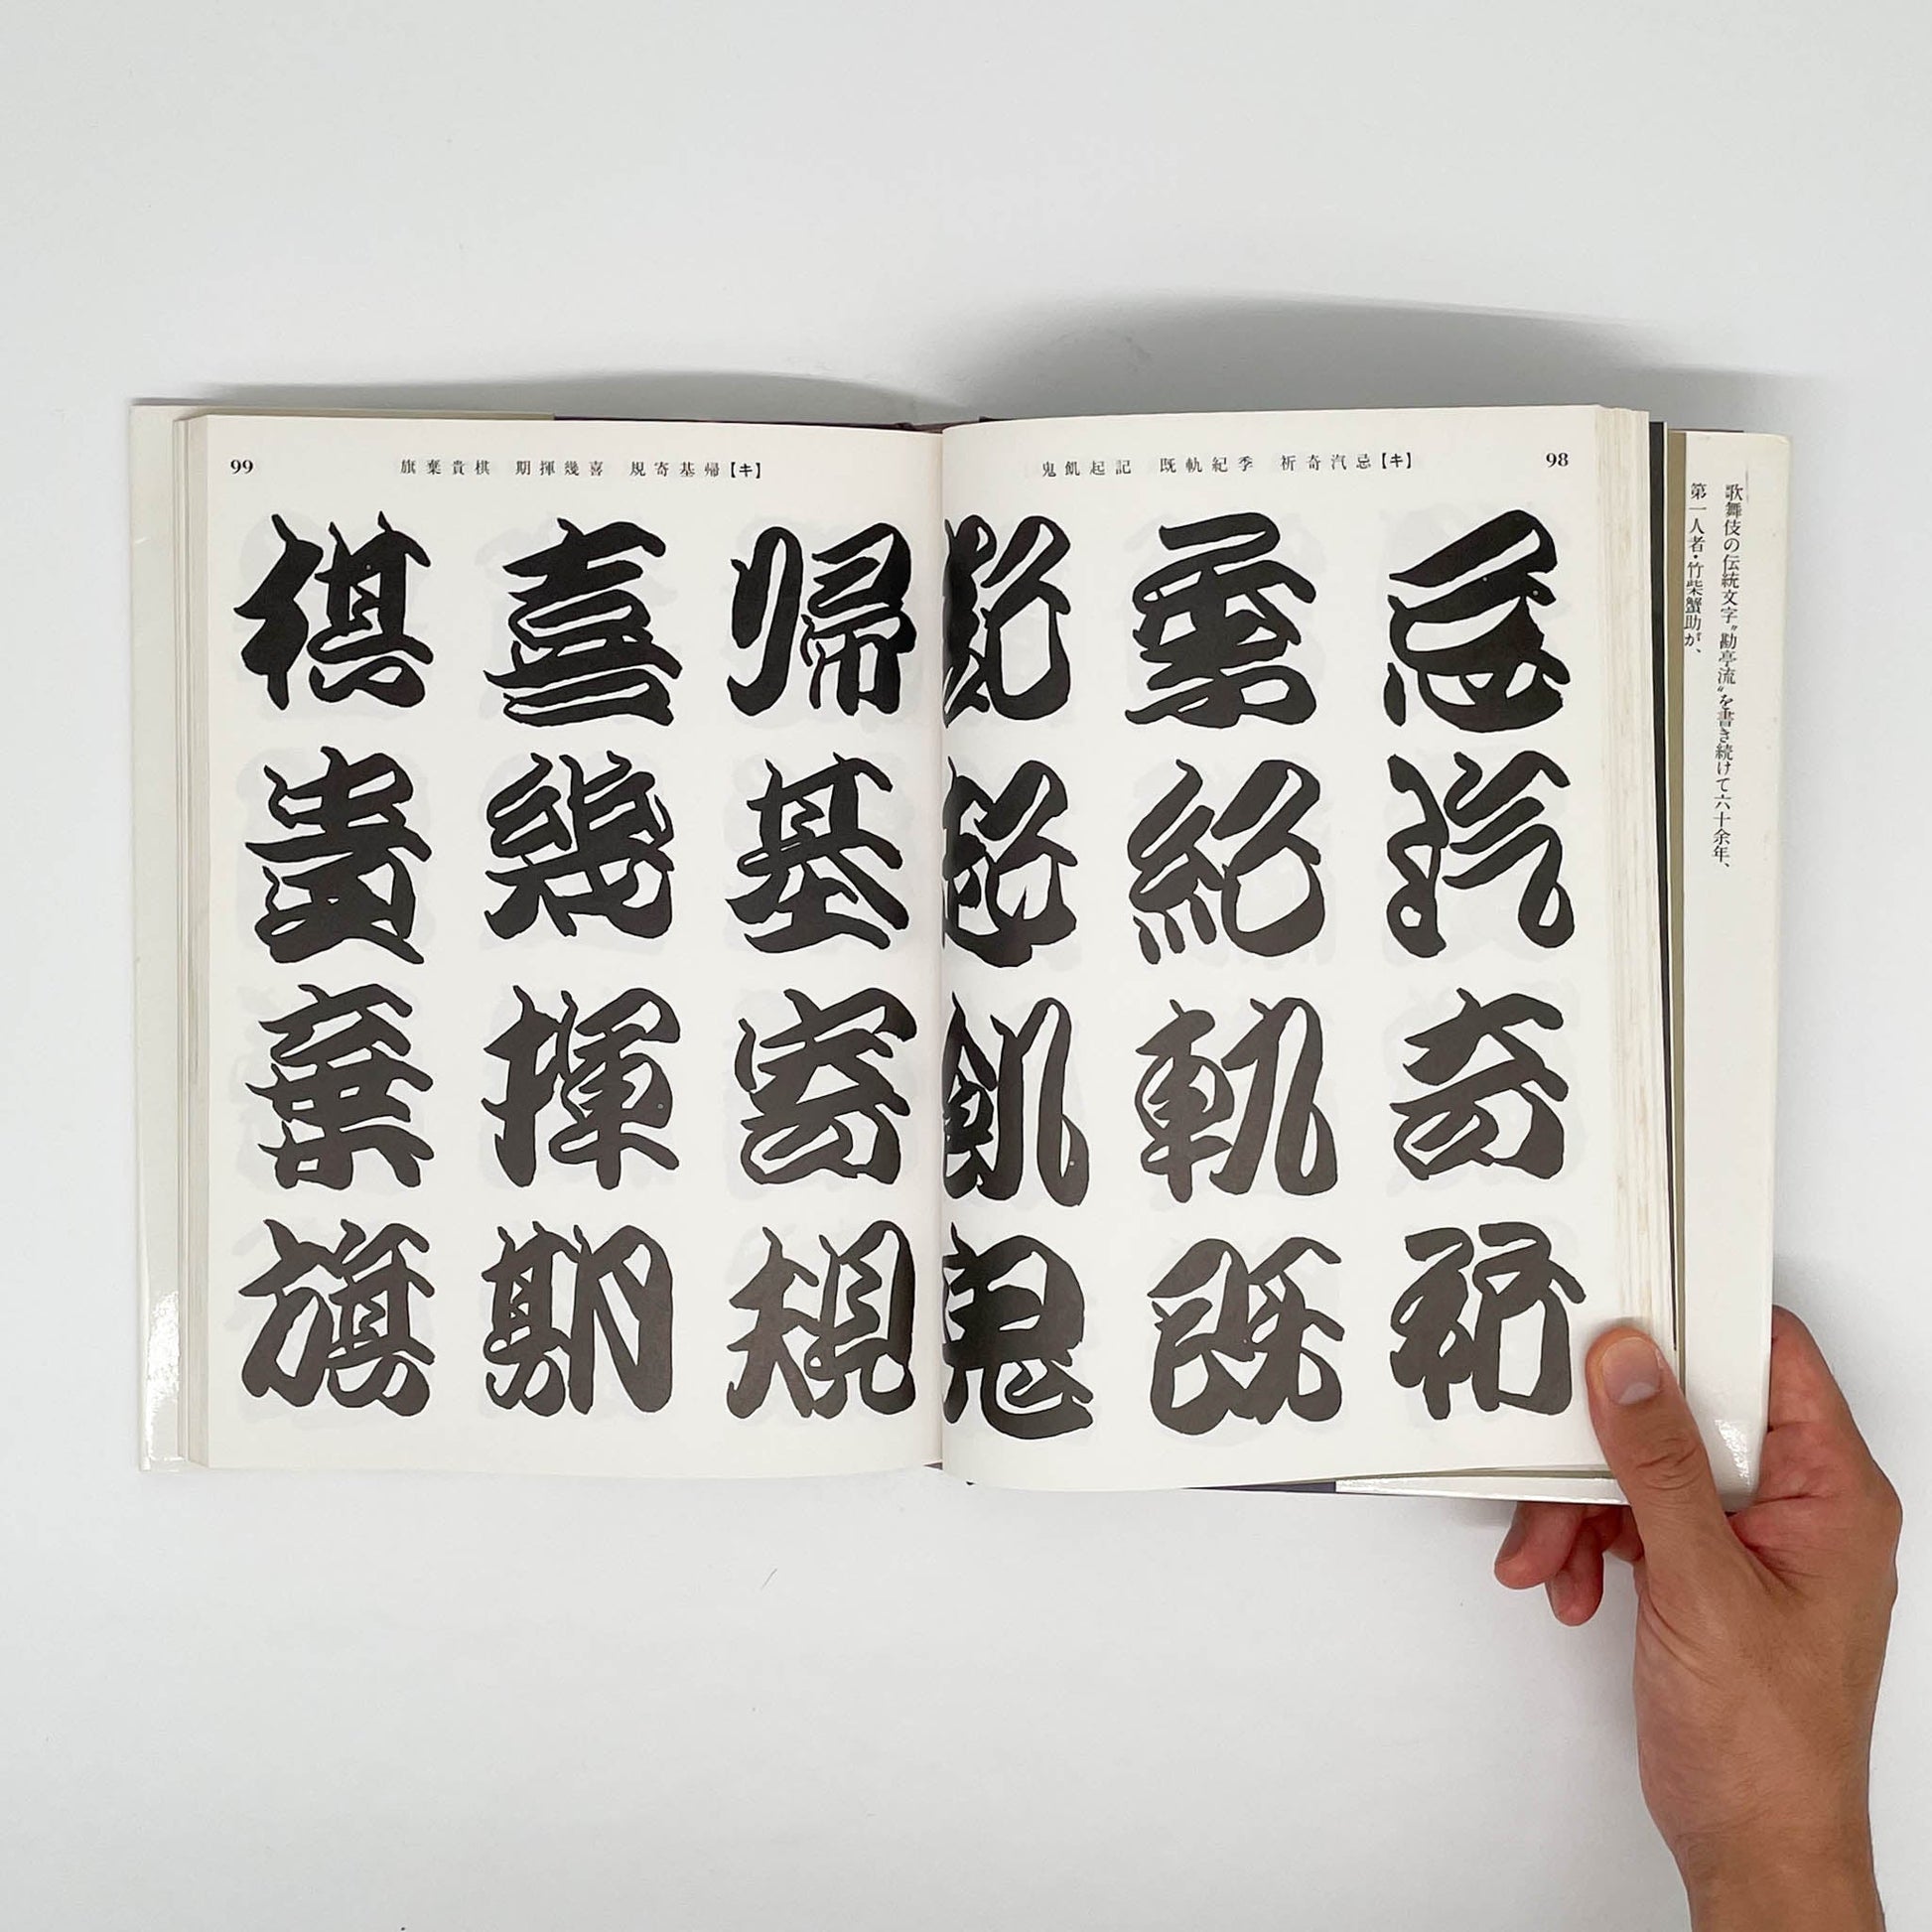 歌舞伎の伝統文字〝勘亭流〟を書き続けて六十余年、
第一人者・竹柴蟹助が、
98
【キ】忌汽奇祈 季紀軌既 記起飢鬼
忌汽奇祈
季紀軌既
記起飢鬼
99
【キ】帰基寄規 喜幾揮期 棋貴棄旗
帰基寄規
喜幾揮期
棋貴棄旗